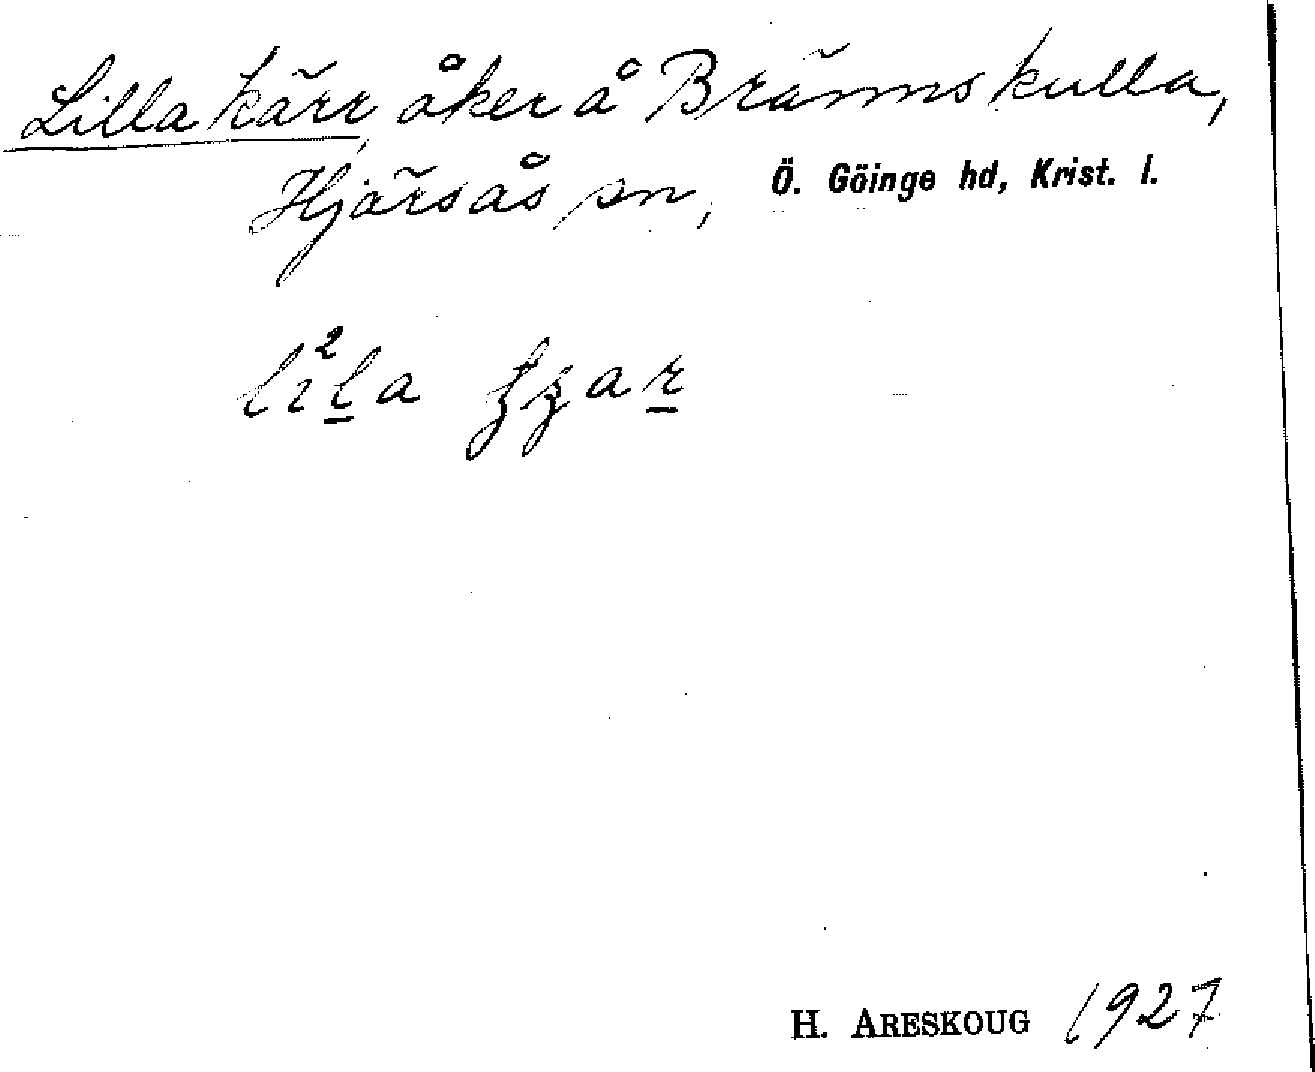 Lilla kärr, åker å Brämskulla,
Hjärsås sn, Ö. Göinge hd, Krist. l.
li²l̲a
H. ARESKOUG 1927